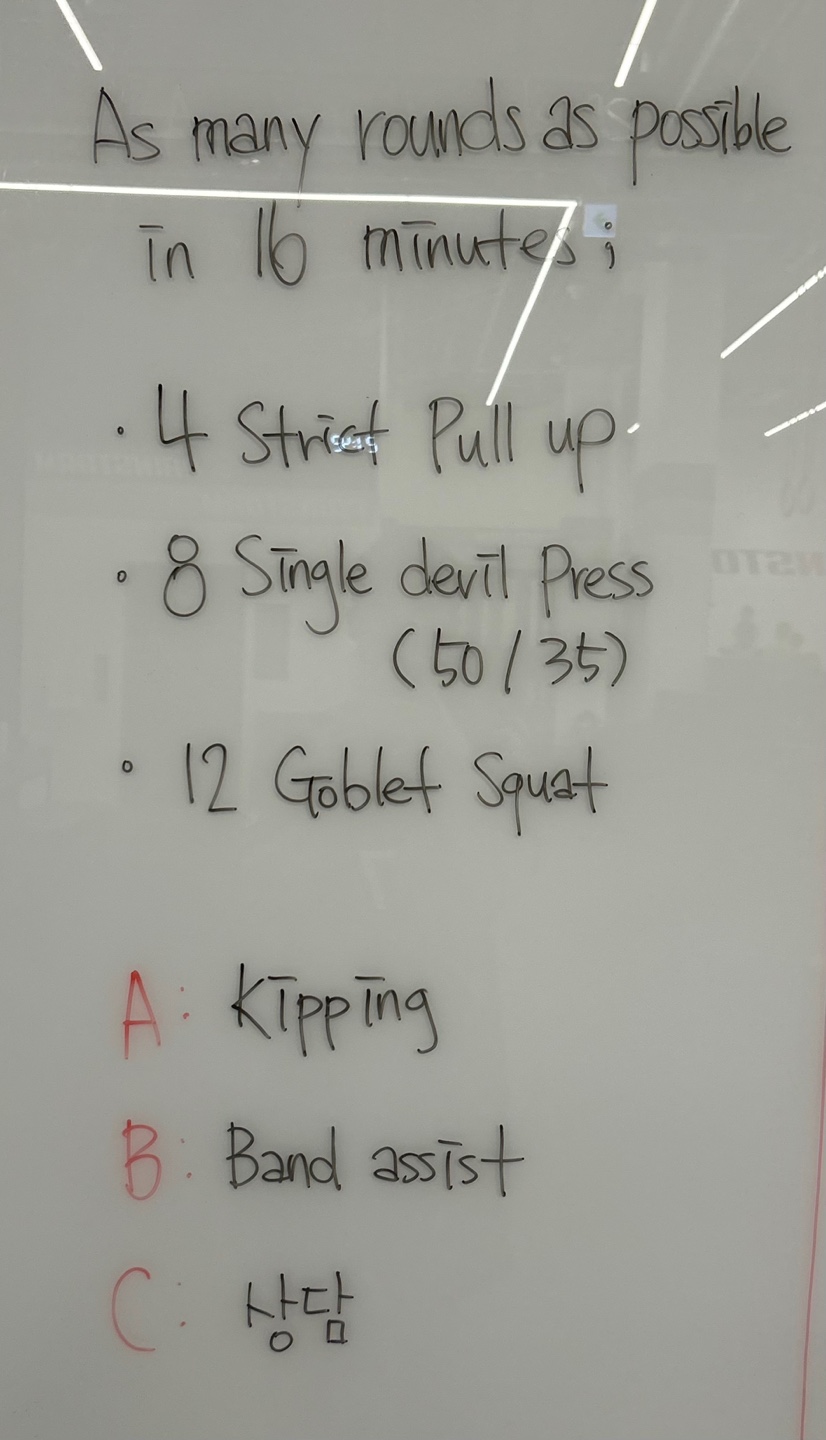 As many rounds as possible
in 16 minutes;
• 4 Strict Pull up
• 8 Single devil Press
(50/35)
• 12 Goblet Squat
A: Kipping
B: Band assist
C: 상담